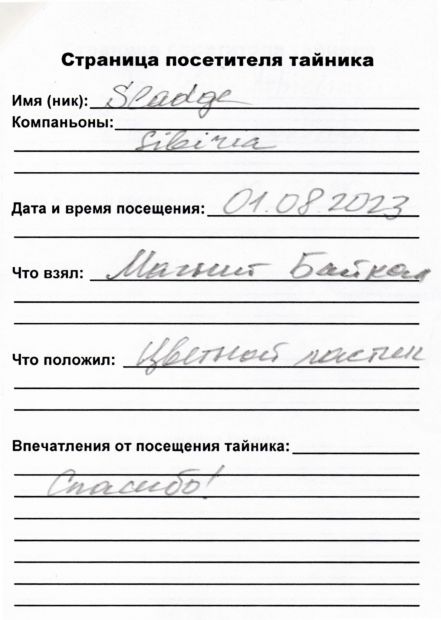 Страница посетителя тайника
Имя (ник): Sladge
Компаньоны:
Sibiria
Дата и время посещения: 01.08.2023
Что взял: Магнит Байкал
Что положил: Цветной ластик
Впечатления от посещения тайника:
Спасибо!